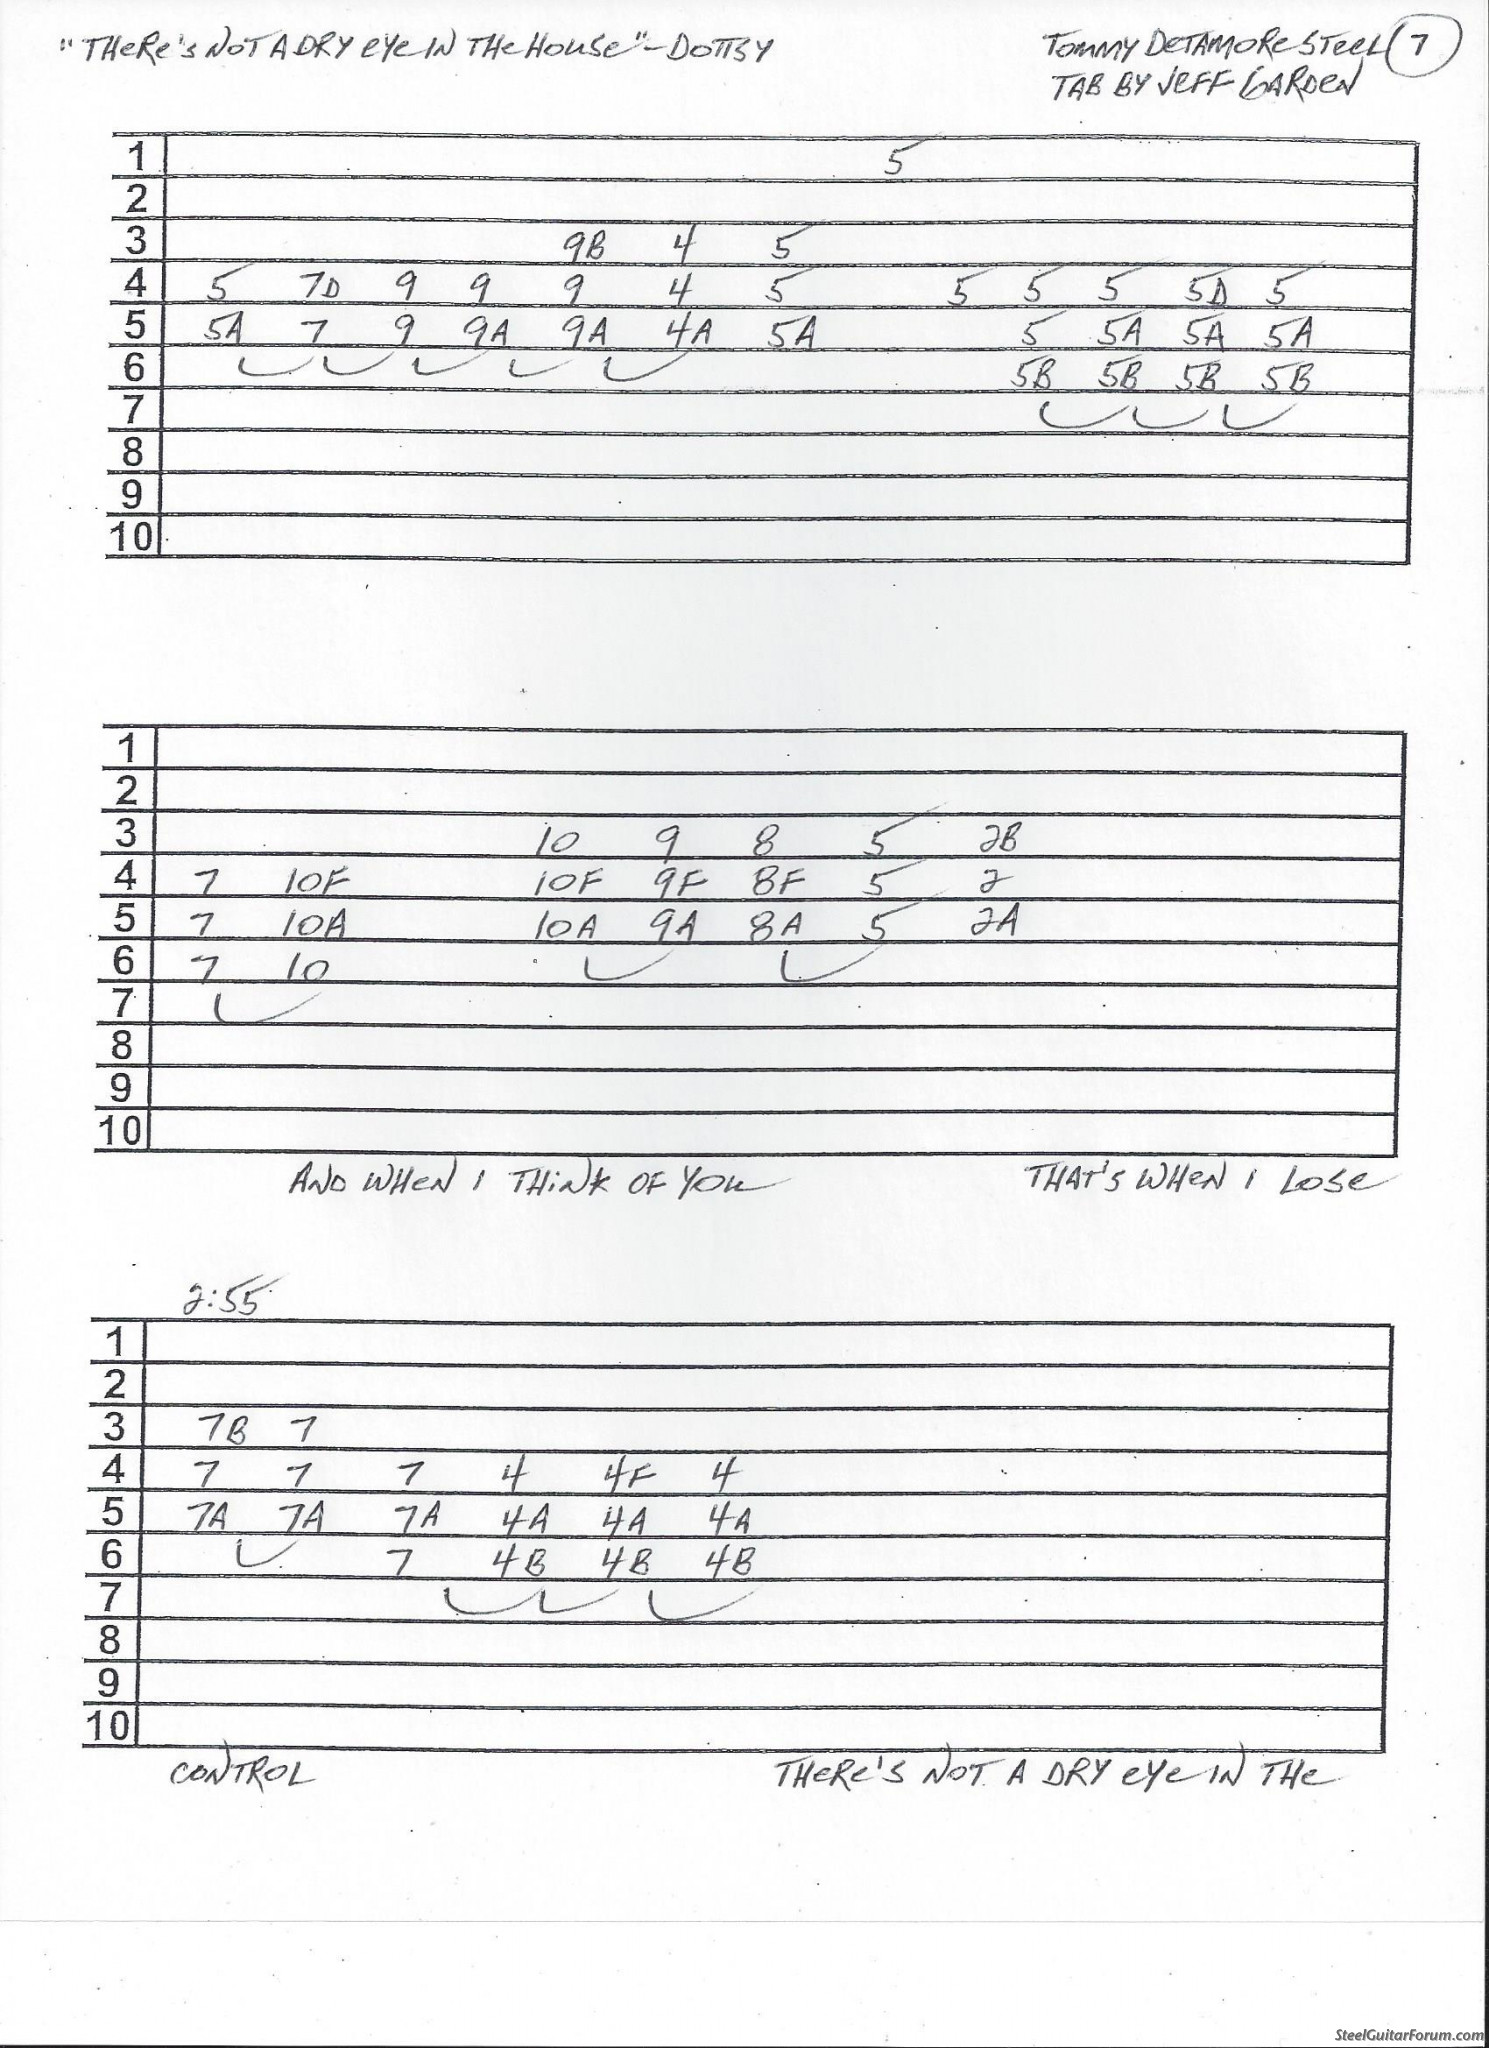 "THERE'S NOT A DRY EYE IN THE HOUSE" - DOTTSY
TOMMY DETAMORE STEEL 7
TAB BY JEFF GARDEN
1 5
2
3 9B 4 5
4 5 7D 9 9 9 4 5 5 5 5 5D 5
5 5A 7 9 9A 9A 4A 5A 5 5A 5A 5A
6 5B 5B 5B 5B
7
8
9
10
1
2
3 10 9 8 5 2B
4 7 10F 10F 9F 8F 5 2
5 7 10A 10A 9A 8A 5 2A
6 7 10
7
8
9
10
AND WHEN I THINK OF YOU THAT'S WHEN I LOSE
2:55
1
2
3 7B 7
4 7 7 7 4 4F 4
5 7A 7A 7A 4A 4A 4A
6 7 4B 4B 4B
7
8
9
10
CONTROL THERE'S NOT A DRY EYE IN THE
SteelGuitarForum.com